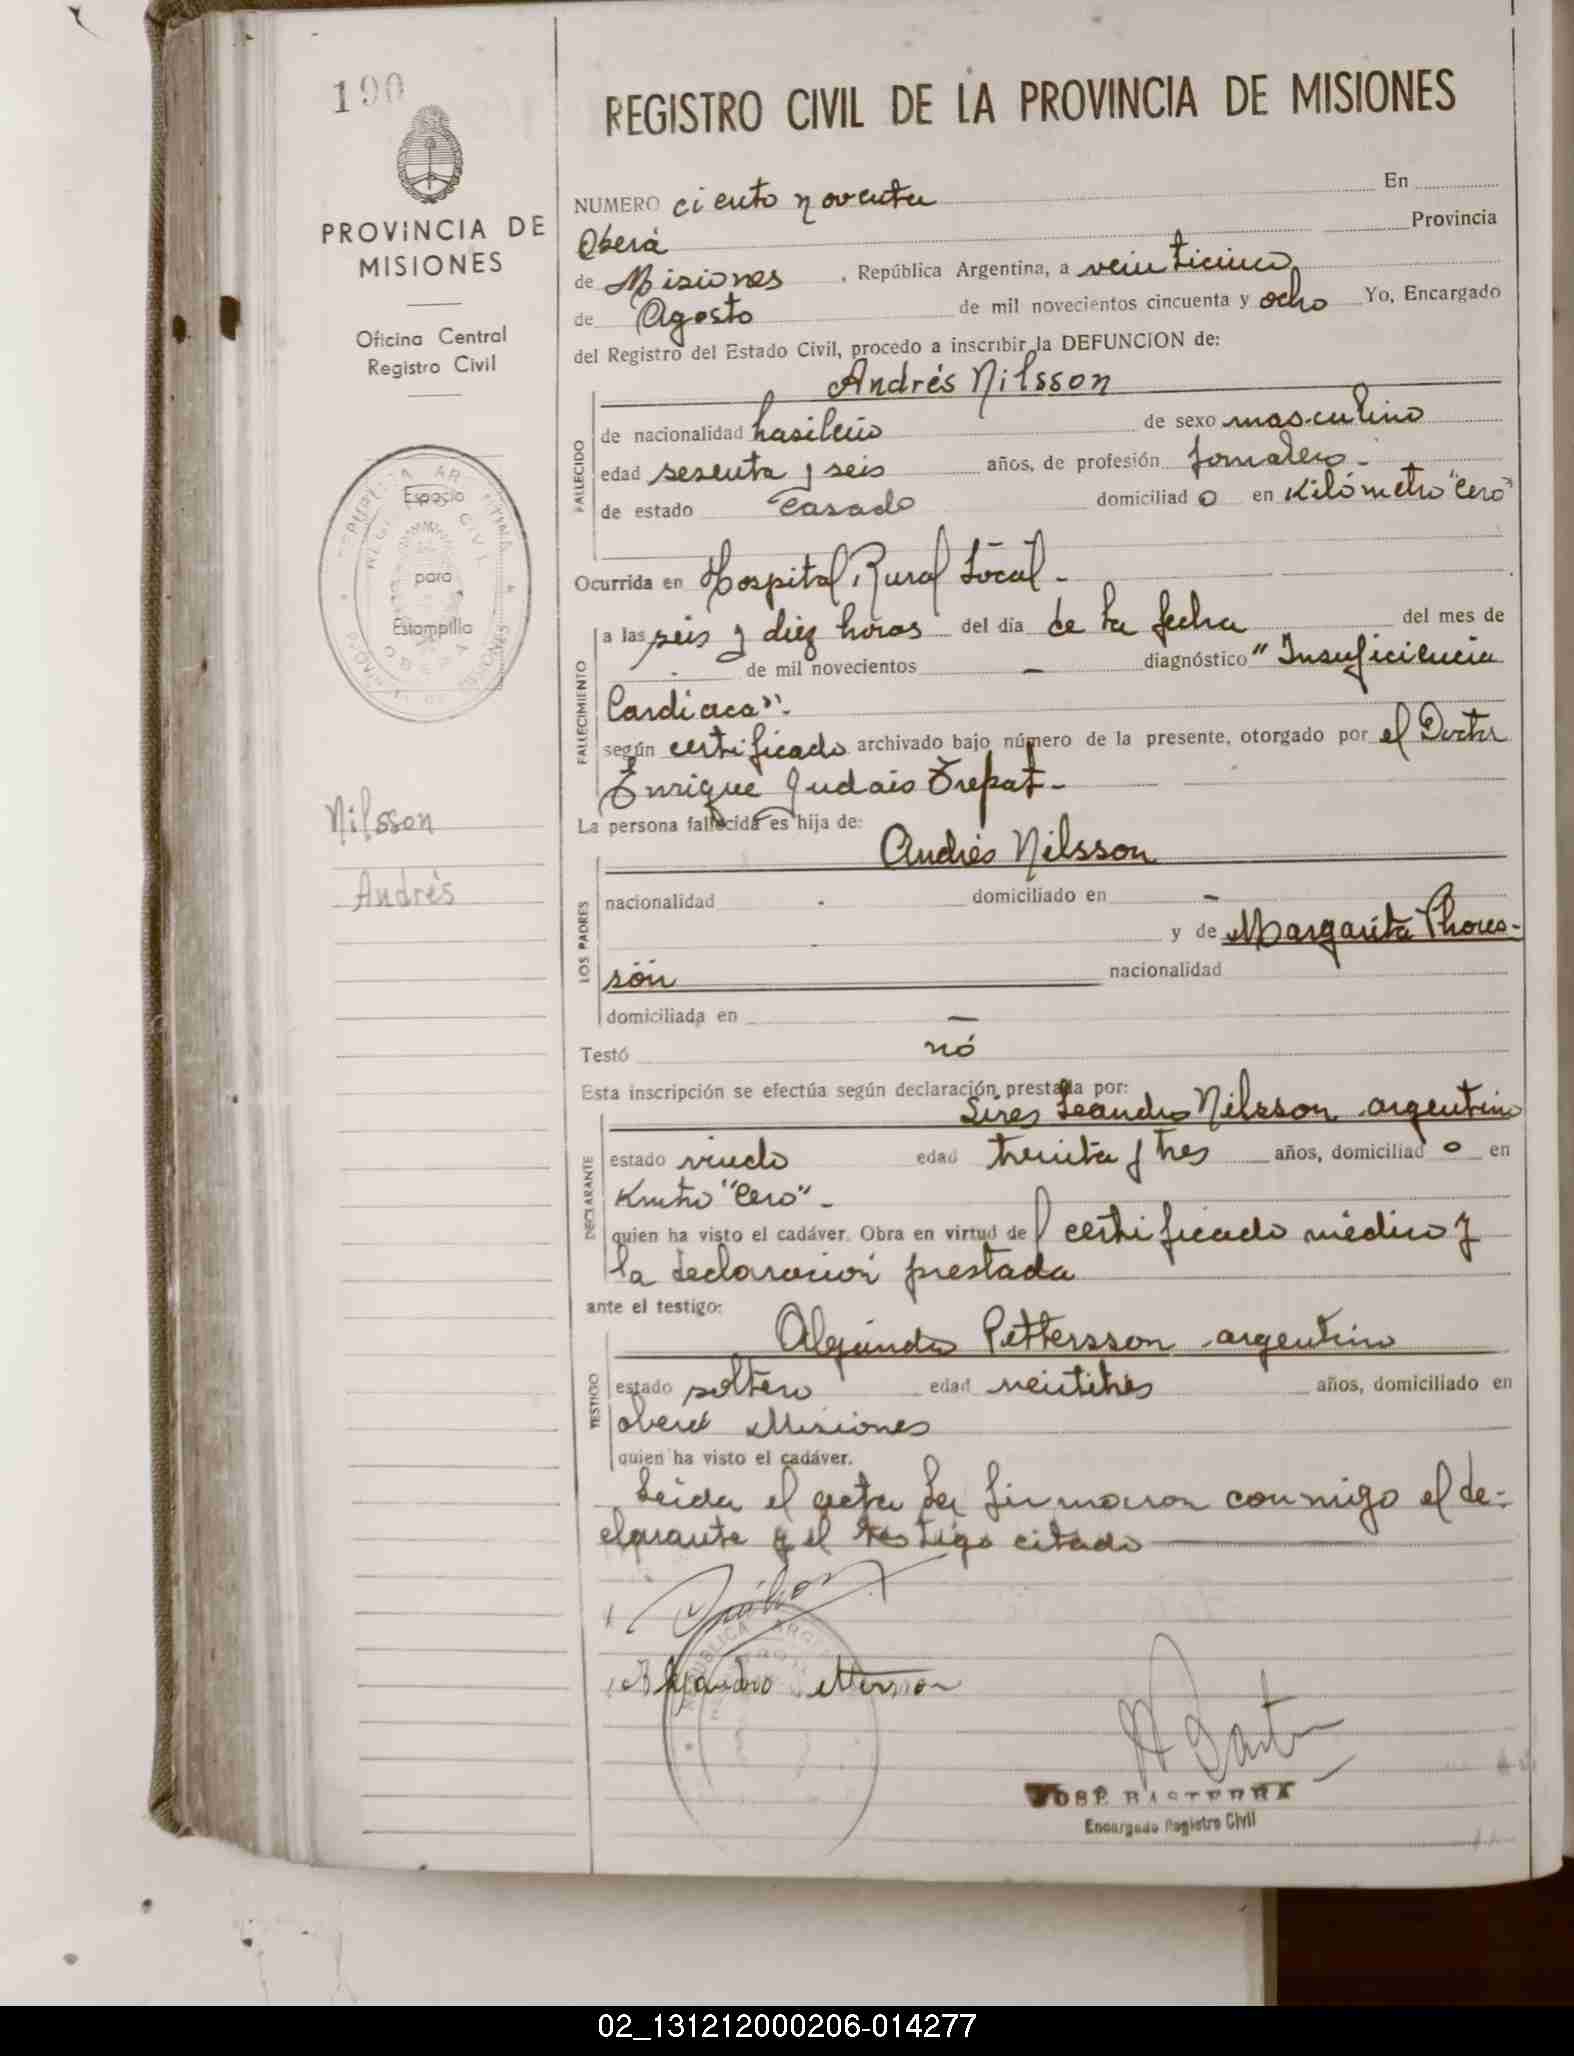 190
REGISTRO CIVIL DE LA PROVINCIA DE MISIONES
PROVINCIA DE
MISIONES
Oficina Central
Registro Civil
Espacio
para
Estampilla
Nilsson
Andrés
NUMERO ciento noventa En
Oberá Provincia
de Misiones , República Argentina, a veinticinco
de Agosto de mil novecientos cincuenta y ocho Yo, Encargado
del Registro del Estado Civil, procedo a inscribir la DEFUNCION de:
Andrés Nilsson
FALLECIDO
de nacionalidad brasileño de sexo masculino
edad sesenta y seis años, de profesión jornalero.-
de estado casado domiciliad o en Kilómetro "Cero"
Ocurrida en Hospital Rural Local.-
FALLECIMIENTO
a las seis y diez horas del día de la fecha del mes de
- de mil novecientos - diagnóstico "Insuficiencia
Cardiaca".
según certificado archivado bajo número de la presente, otorgado por el Doctor
Enrique Judais Trepat.-
La persona fallecida es hija de:
Andrés Nilsson
LOS PADRES
nacionalidad - domiciliado en -
- y de Margarita
són nacionalidad
domiciliada en -
Testó nó
Esta inscripción se efectúa según declaración prestada por:
Leandro Nilsson argentino
DECLARANTE
estado viudo edad treinta y tres años, domiciliad o en
"Cero".-
quien ha visto el cadáver. Obra en virtud del certificado médico y
la declaración prestada
ante el testigo:
Alejandro Pettersson argentino
TESTIGO
estado soltero edad veintitrés años, domiciliado en
oberá Misiones
quien ha visto el cadáver.
Leida el acta la firmaron conmigo el de-
clarante y el testigo citado
Alejandro Pettersson
JOSÉ BASTERRA
Encargado Registro Civil
02_131212000206-014277